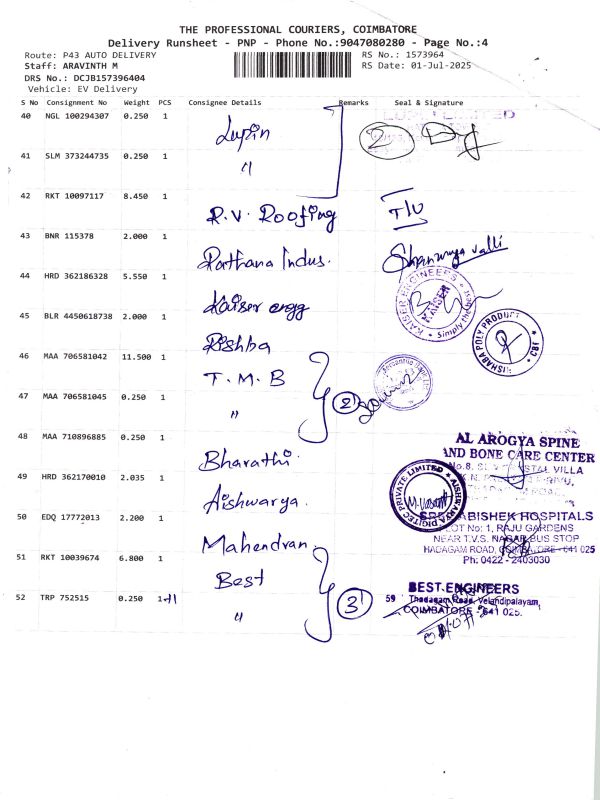 THE PROFESSIONAL COURIERS, COIMBATORE
Delivery Runsheet - PNP - Phone No.:9047080280 - Page No.:4
Route: P43 AUTO DELIVERY
RS No.: 1573964
Staff: ARAVINTH M
RS Date: 01-Jul-2025
DRS No.: DCJB157396404
Vehicle: EV Delivery
S No Consignment No Weight PCS Consignee Details Remarks Seal & Signature
40 NGL 100294307 0.250 1 Lupin 2
41 SLM 373244735 0.250 1 "
42 RKT 10097117 8.450 1 R.V. Roofing
43 BNR 115378 2.000 1 Rathana Indus.
44 HRD 362186328 5.550 1 Kaiser engg
KAISER ENGINEERS
KAISER
45 BLR 4450618738 2.000 1 Rishba
RISHABA POLY PRODUCT CBE
46 MAA 706581042 11.500 1 T.M.B 2
47 MAA 706581045 0.250 1 "
48 MAA 710896885 0.250 1 Bharathi
AL AROGYA SPINE
AND BONE CARE CENTER
49 HRD 362170010 2.035 1 Aishwarya
AISHWARYA DIGITEC PRIVATE LIMITED
M.Vasanth
50 EDQ 17772013 2.200 1 Mahendran
ABISHEK HOSPITALS
No: 1, RAJU GARDENS
NEAR T.V.S. NAGAR BUS STOP
THADAGAM ROAD, COIMBATORE - 641 025
Ph: 0422 - 2403030
51 RKT 10039674 6.800 1 Best
52 TRP 752515 0.250 1+1 " 3
BEST ENGINEERS
59 Thadagam Road, Velandipalayam,
COIMBATORE - 641 025.